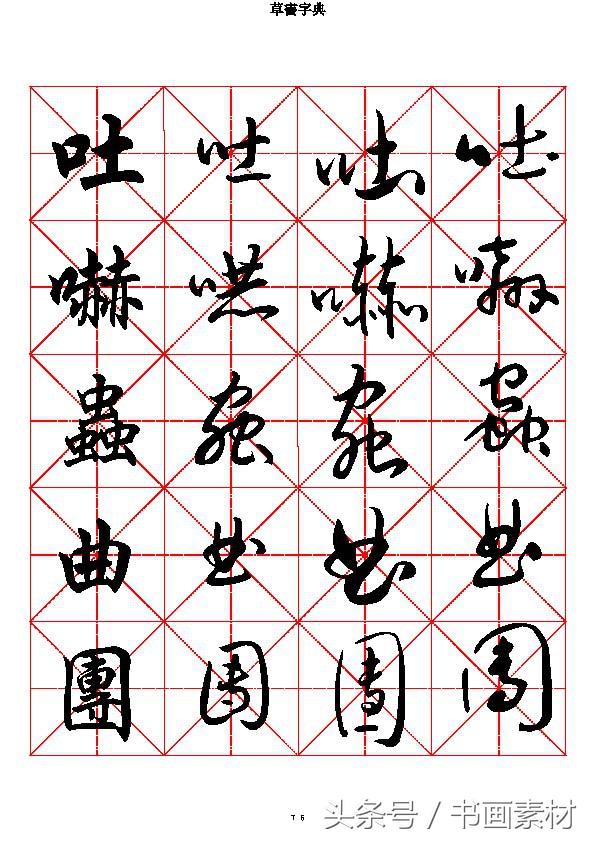 草書字典
吐 吐 吐 吐
嚇 嚇 嚇 嚇
蟲 蟲 蟲 蟲
曲 曲 曲 曲
團 團 團 團
76
头条号 / 书画素材